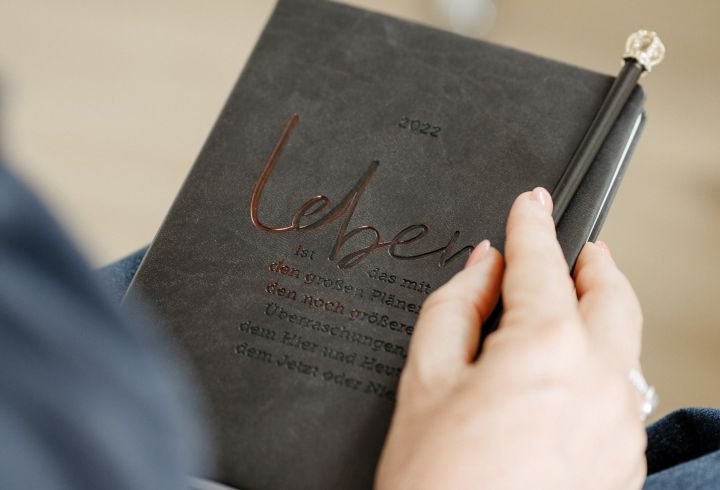 2022
Leben
ist das mit
den großen Plänen
den noch größeren
Überraschungen,
dem Hier und Heute
dem Jetzt oder Nie